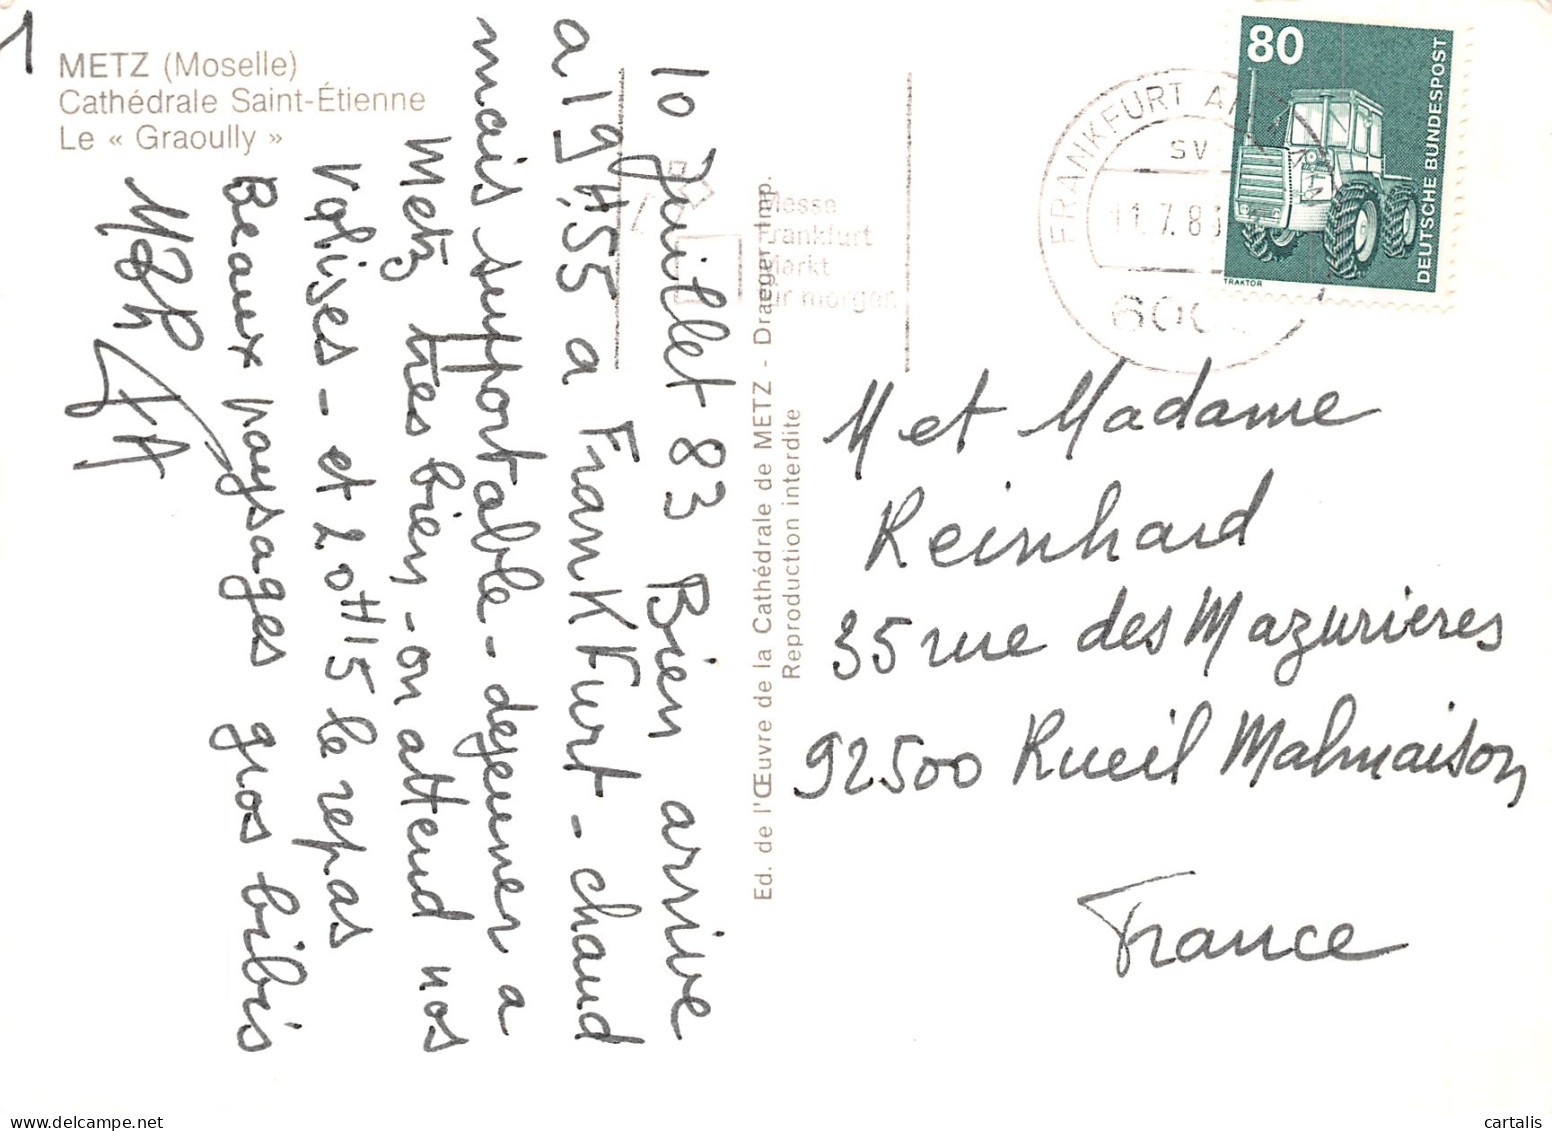 1
METZ (Moselle)
Cathédrale Saint-Étienne
Le « Graoully »
10 Juillet 83 Bien arrive
a 19H55 a FranKfurt - chaud
mais supportable - dejeuner a
Metz tres bien - on attend nos
Valises - et 20H15 le repas
Beaux paysages gros bibis
Ed. de l'Œuvre de la Cathédrale de METZ - Draeger Imp.
Reproduction interdite
Messe
Frankfurt
Markt
für morgen
FRANKFURT AM
sv
11.7.83
600
80
DEUTSCHE BUNDESPOST
TRAKTOR
M et Madame
Reinhard
35 rue des Mazurieres
92500 Rueil Malmaison
France
cartalis